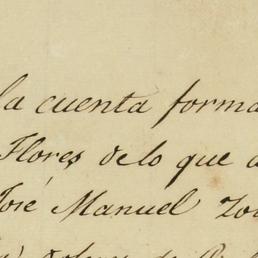 la cuenta forma
Flores de lo que a
José Manuel Zo